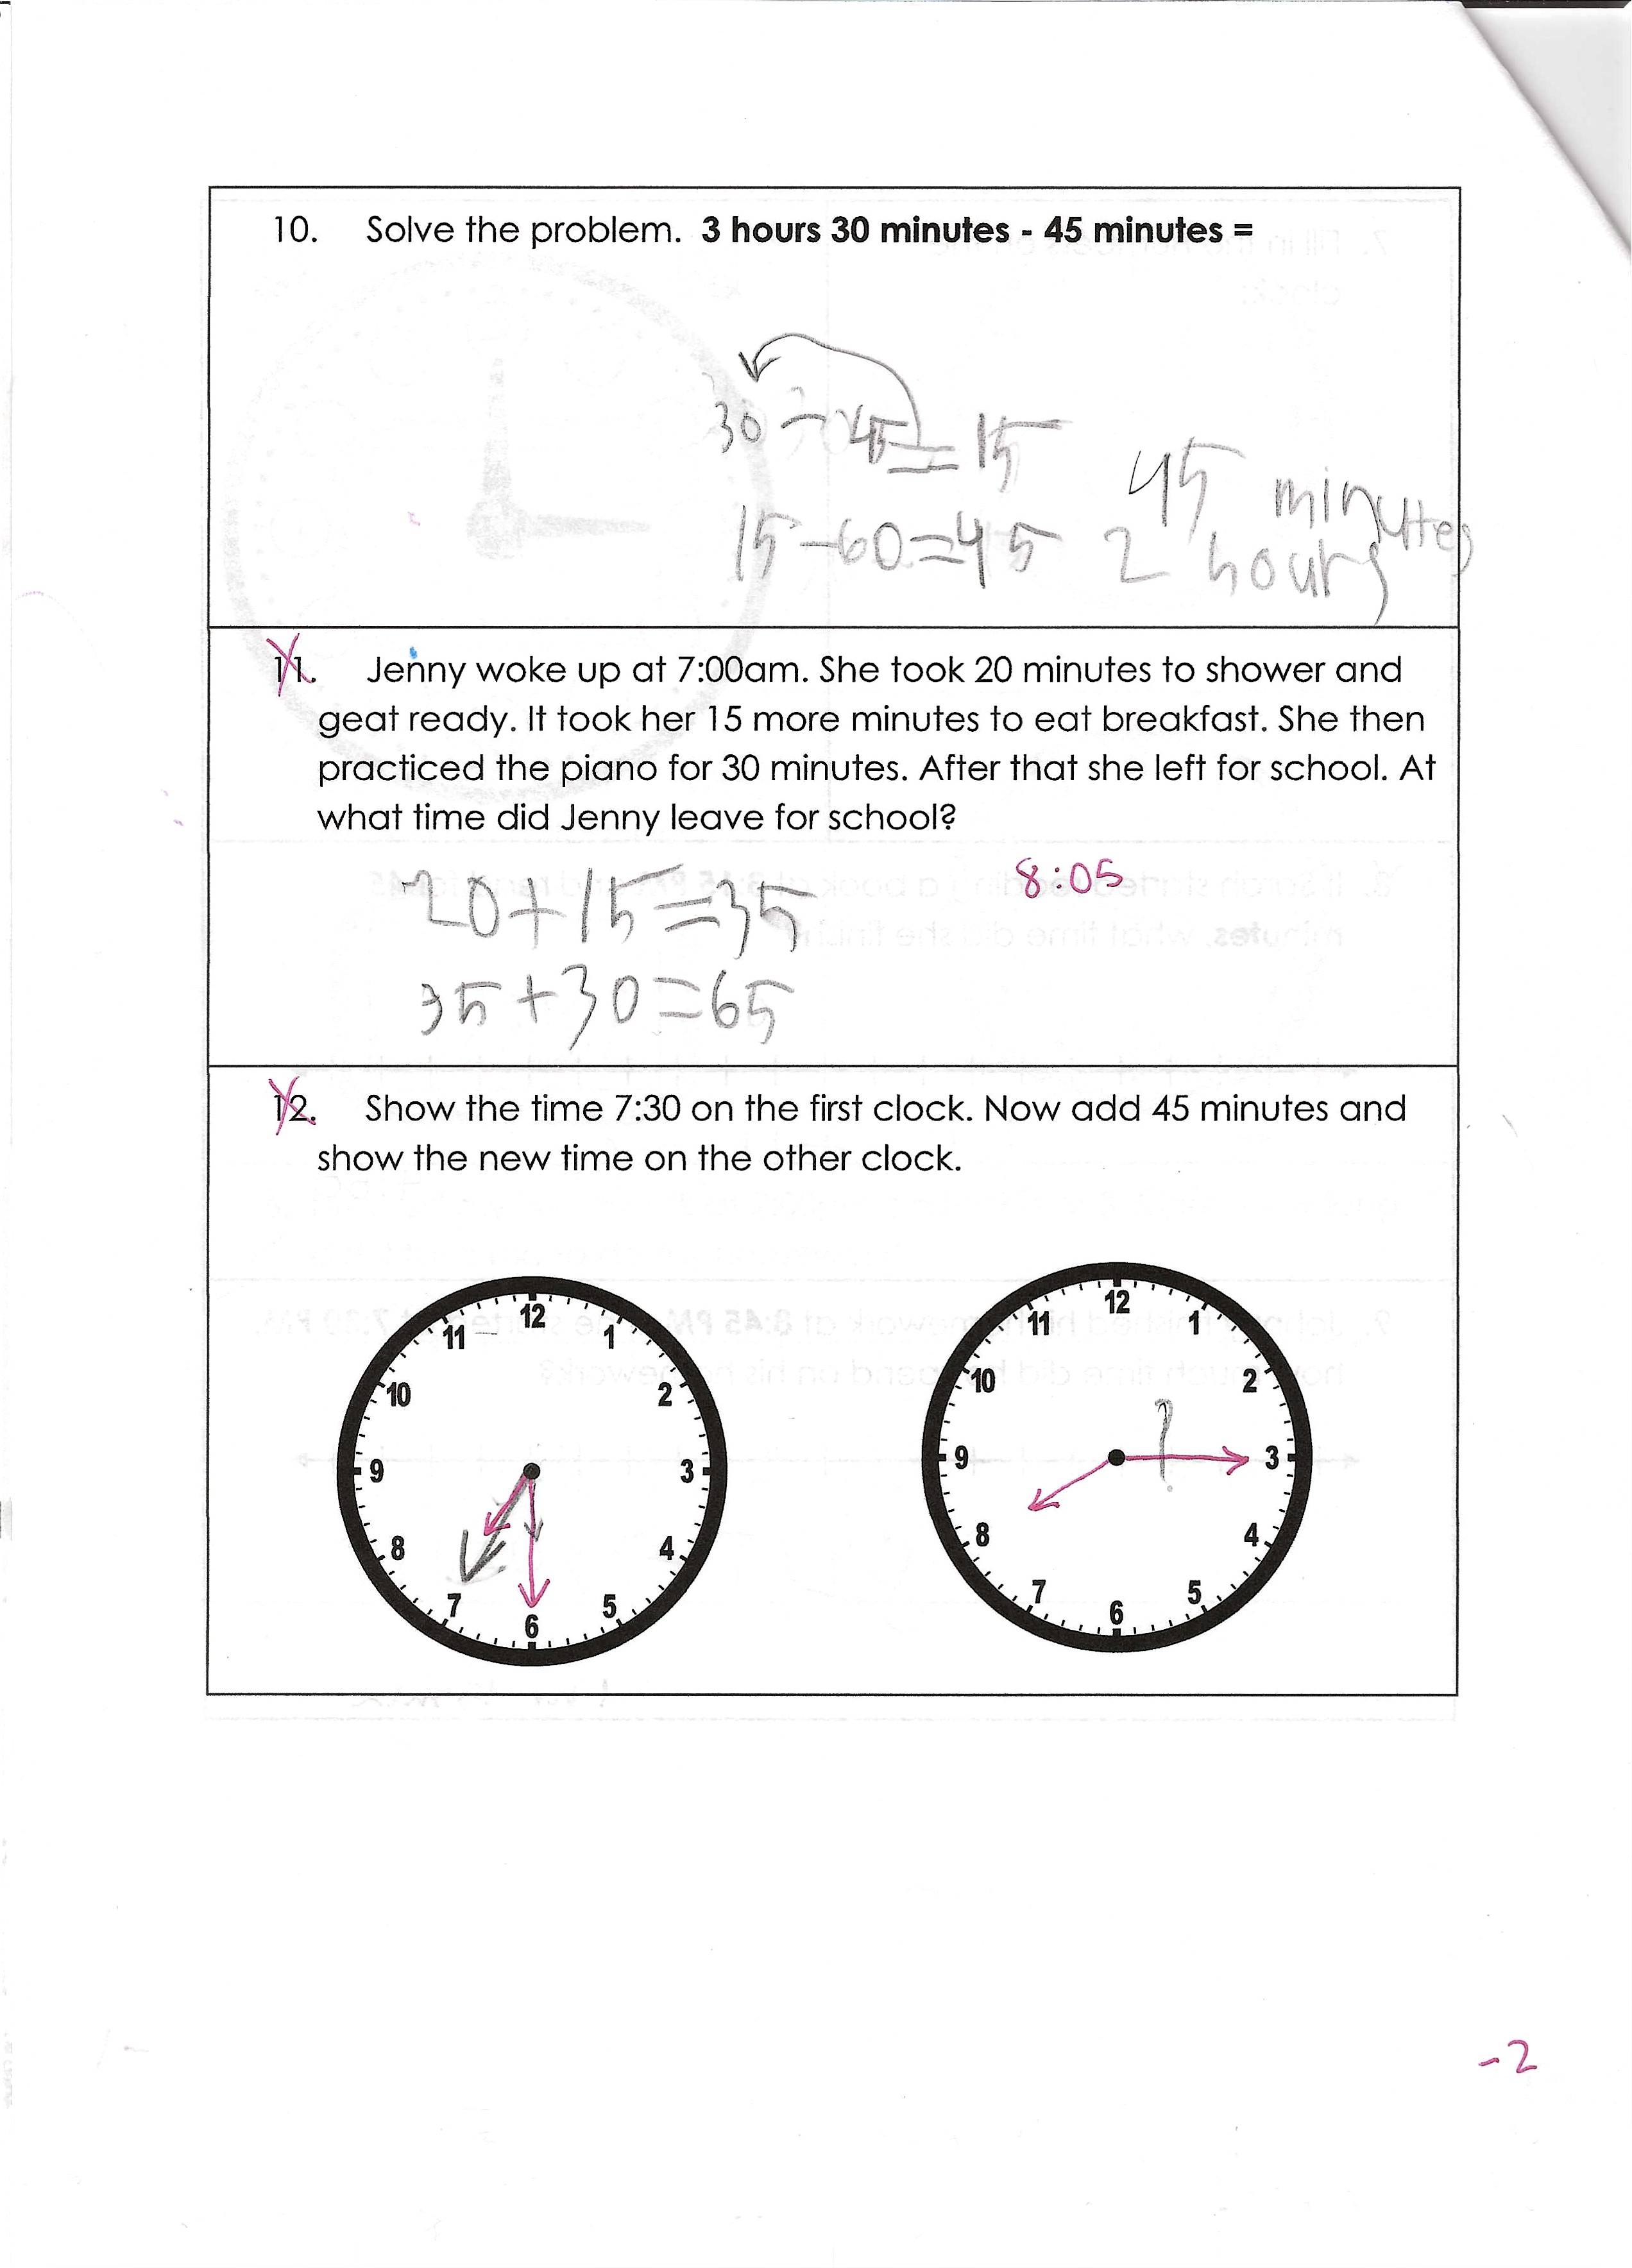 10. Solve the problem. 3 hours 30 minutes - 45 minutes =
30 - 45 = 15
45 minutes
15-60=45 2 hours
11. Jenny woke up at 7:00am. She took 20 minutes to shower and
geat ready. It took her 15 more minutes to eat breakfast. She then
practiced the piano for 30 minutes. After that she left for school. At
what time did Jenny leave for school?
8:05
20+15=35
35+30=65
12. Show the time 7:30 on the first clock. Now add 45 minutes and
show the new time on the other clock.
12 1 2 3 4 5 6 7 8 9 10 11
12 1 2 3 4 5 6 7 8 9 10 11
?
-2